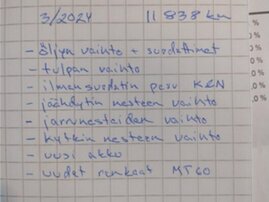 3/2024 11 838 km
- öljyn vaihto + suodattimet
- tulpan vaihto
- ilmansuodatin pesu K&N
- jäähdytin nesteen vaihto
- jarrunesteiden vaihto
- kytkin nesteen vaihto
- uusi akku
- uudet renkaat MT60
0 %
0 %
0 %
0 %